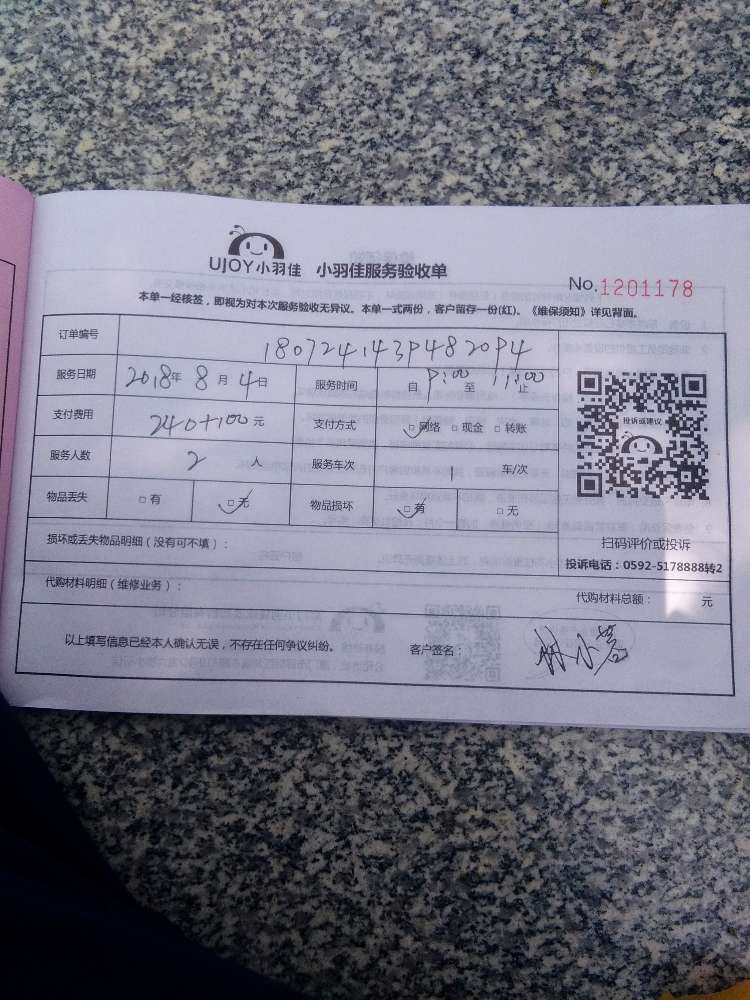 UJOY小羽佳 小羽佳服务验收单
No.1201178
本单一经核签，即视为对本次服务验收无异议。本单一式两份，客户留存一份(红)。《维保须知》详见背面。
订单编号 1807241439482094
服务日期 2018年 8月 4日 服务时间 自 9:00 至 11:00 止
支付费用 240+100元 支付方式 □网络 □现金 □转账
服务人数 2 人 服务车次 1 车/次
物品丢失 □有 □无 物品损坏 □有 □无
投诉或建议
扫码评价或投诉
投诉电话：0592-5178888转2
损坏或丢失物品明细（没有可不填）：
代购材料明细（维修业务）： 代购材料总额： 元
以上填写信息已经本人确认无误，不存在任何争议纠纷。 客户签名：